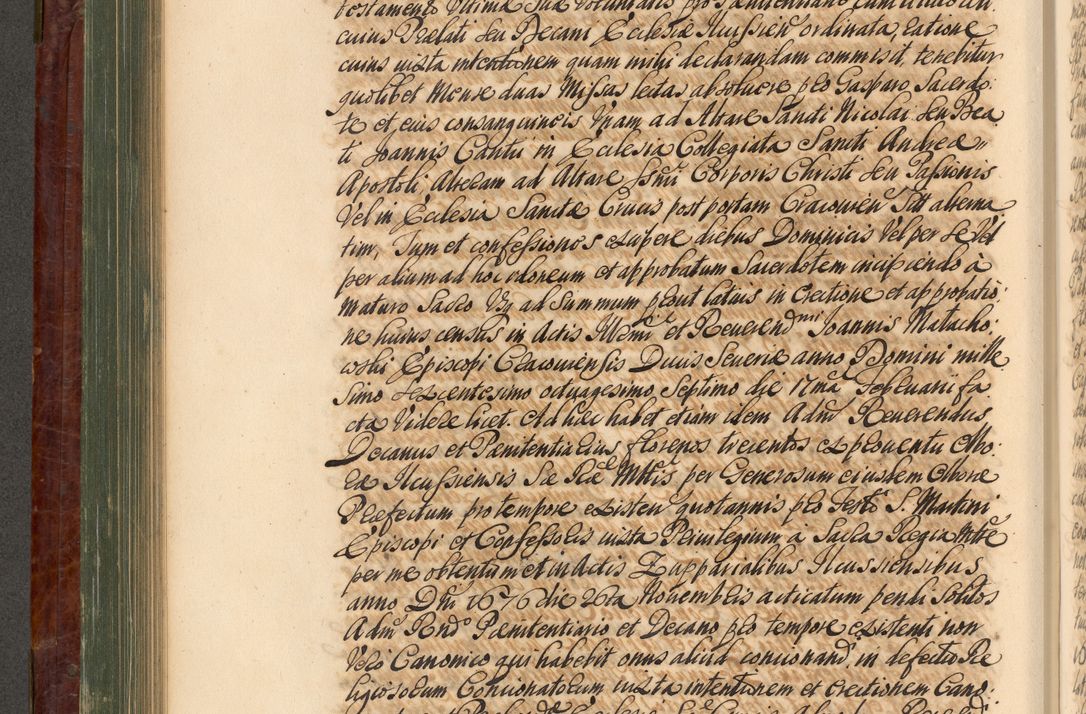 cuius Prælati seu Decani Ecclesiæ Ilcussien̄ ordinata, ratione
cuius iuxta intentionem quam mihi declarandam commisit, tenebitur
quolibet Mense duas Missas lectas absoluere pro Gasparo Sacerdo:
te et eius consanguineis Vnam ad Altare Sancti Nicolai seu Bea
ti Joannis Cantii in Ecclesia Collegiata Sancti Andreæ
Apostoli, Alteram ad Altare Ssm̄i Corporis Christi seu Passionis
Vel in Ecclesia Sanctæ Crucis post portam Cracouien̄ alterna
tim, Tum et confessiones excipere diebus Dominicis Vel per se Vel
per alium ad hoc idoneum et approbatum Sacerdotem incipiendo à
Maturo Sacro Vsq ad Summum prout latius in Erectione et approbatio:
ne huius census in Actis Illm̄i et Reverendmi Joannis Matacho:
wski Episcopi Cracouiensis Ducis Seueriæ anno Domini mille
simo sexcentesimo octuagesimo Septimo die 17ma Februarii fa
cta Videre licet. Ad hæc habet etiam idem Adm̄ Reuerendus
Decanus et Pænitentiarius florenos trecentos ex prouentu Olbo:
ræ Ilcussiensis Sæ Ræ Mttis per Generosum eiusdem Olboræ
Præfectum pro tempore existen̄ quotannis pro Festo S. Martini
Episcopi et Confessoris iuxta Priuilegium à Sacra Regia Mtte
per me obtentum et in Actis Zupparialibus Ilcussiensibus
anno Dn̄i 1676 die 26ta Nouembris acticatum pendi solitos
Adm̄ Rndo Pænitentiario et Decano pro tempore existenti non
Vero Canonico qui habebit onus aliud concionandi in defectu Re
ligiosorum Concionatorum iuxta intentionem et erectionem Cano: